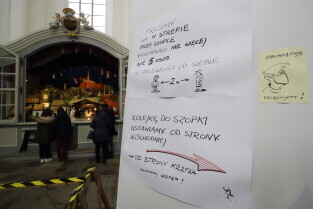 PROSIMY
W STREFIE
PRZY SZOPCE
NIE WIĘCEJ
NIŻ 5 OSÓB
W ODLEGŁOŚCI OD SIEBIE
2m
KOLEJKĘ DO SZOPKI
USTAWIAMY OD STRONY
WSCHODNIEJ
OD STRONY KRZYŻA
DZIĘKUJEMY!